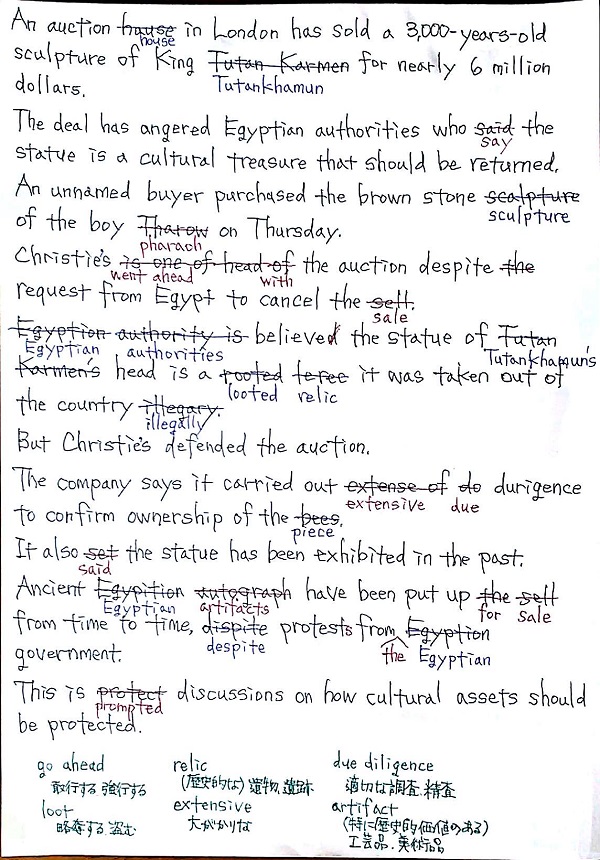 An auction hause in London has sold a 3,000-years-old
house
sculpture of King Tutan Karmen for nearly 6 million
Tutankhamun
dollars.
The deal has angered Egyptian authorities who said the
say
statue is a cultural treasure that should be returned.
An unnamed buyer purchased the brown stone scalpture
sculpture
of the boy Tharow on Thursday.
pharaoh
Christie's is one of head of the auction despite the
went ahead with
request from Egypt to cancel the sell.
sale
Egyption authority is believed the statue of Tutan
Egyptian authorities Tutankhamun's
Karmen's head is a rooted leree it was taken out of
looted relic
the country illegary.
illegally
But Christie's defended the auction.
The company says it carried out extense of do durigence
extensive due
to confirm ownership of the pees.
piece
It also set the statue has been exhibited in the past.
said
Ancient Egypition autograph have been put up the sell
Egyptian artifacts for sale
from time to time, dispite protests from Egyption
despite the Egyptian
government.
This is protect discussions on how cultural assets should
prompted
be protected.
go ahead relic due diligence
敢行する 強行する (歴史的な)遺物、遺跡 適切な調査、精査
loot extensive artifact
略奪する 盗む 大がかりな (特に歴史的価値のある)
工芸品、美術品